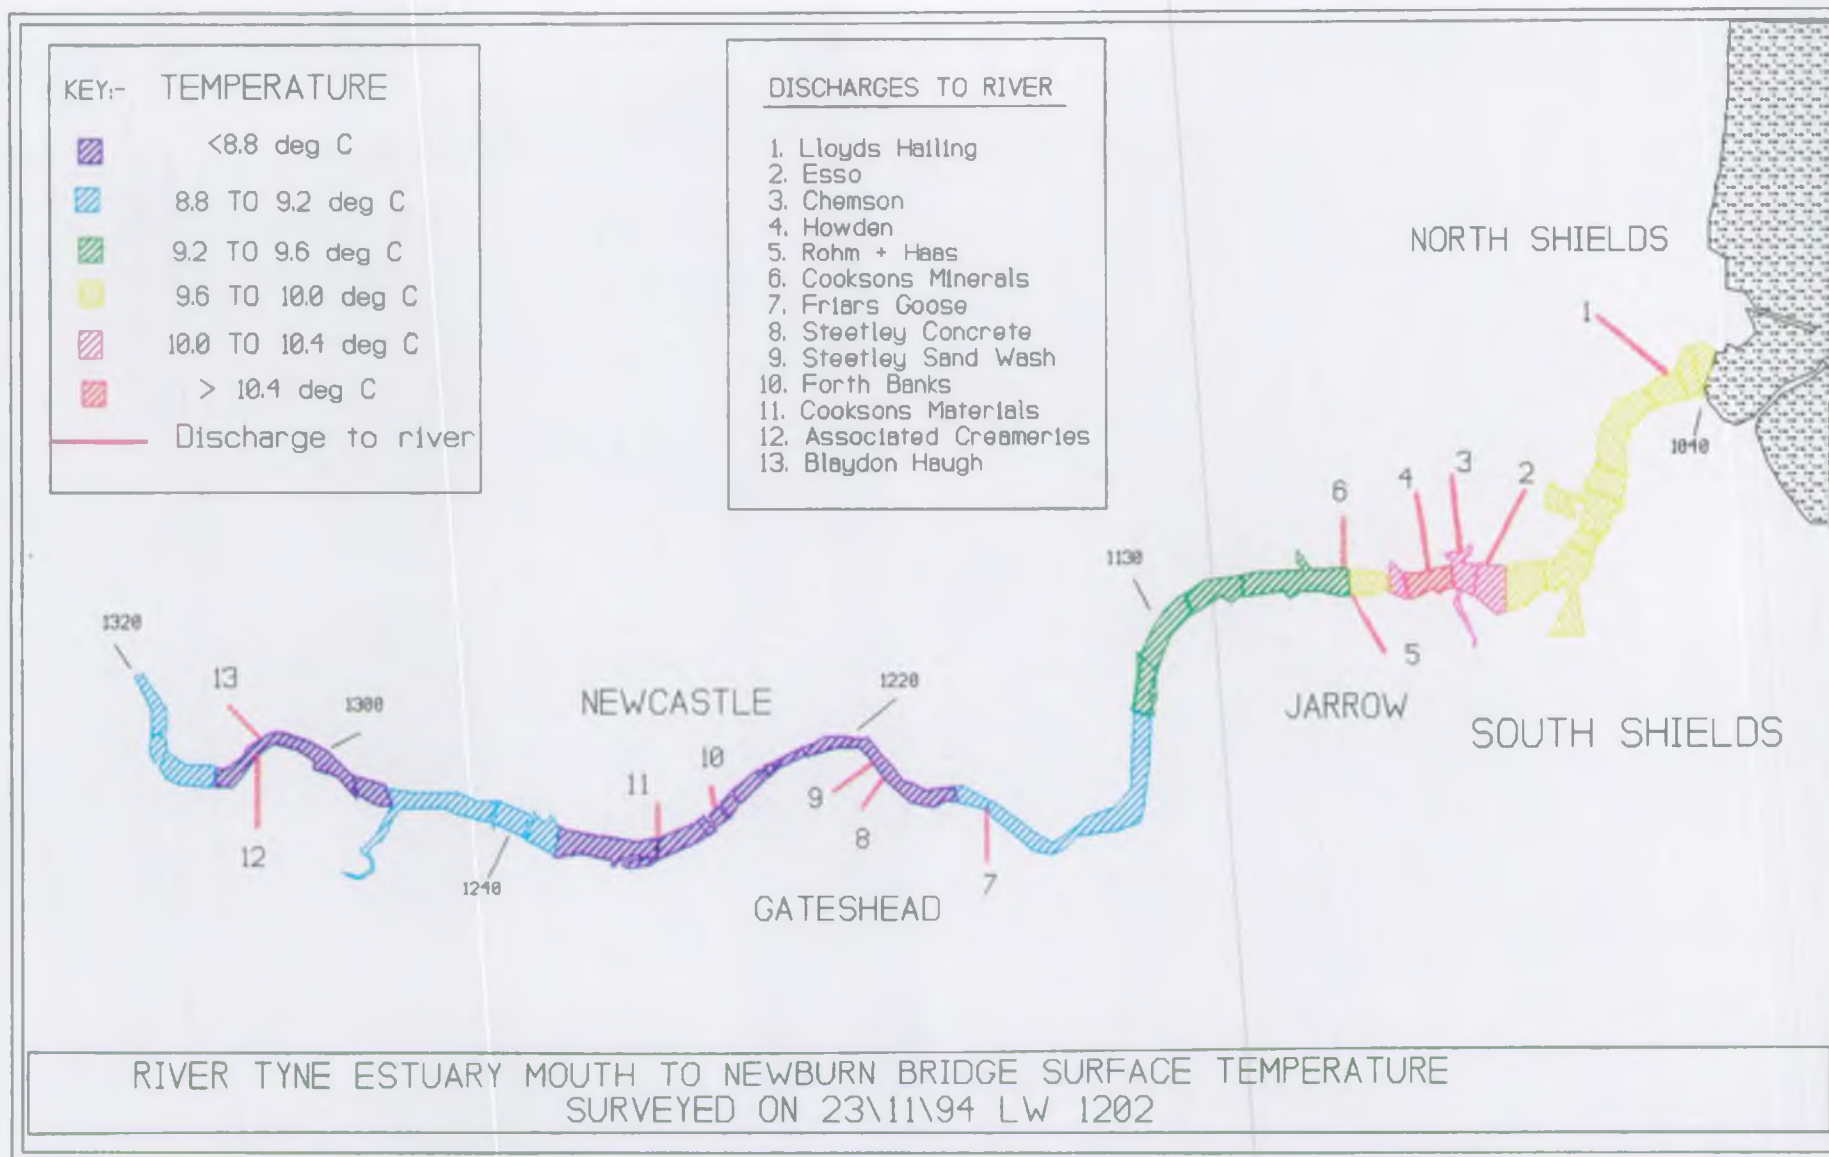 KEY:- TEMPERATURE
<8.8 deg C
8.8 TO 9.2 deg C
9.2 TO 9.6 deg C
9.6 TO 10.0 deg C
10.0 TO 10.4 deg C
> 10.4 deg C
Discharge to river
DISCHARGES TO RIVER
1. Lloyds Hailing
2. Esso
3. Chemson
4. Howden
5. Rohm + Haas
6. Cooksons Minerals
7. Friars Goose
8. Steetley Concrete
9. Steetley Sand Wash
10. Forth Banks
11. Cooksons Materials
12. Associated Creameries
13. Blaydon Haugh
NORTH SHIELDS
1
1040
3
2
4
6
1130
5
JARROW
SOUTH SHIELDS
1320
13
1300
NEWCASTLE
1220
10
11
9
8
12
1240
7
GATESHEAD
RIVER TYNE ESTUARY MOUTH TO NEWBURN BRIDGE SURFACE TEMPERATURE
SURVEYED ON 23\11\94 LW 1202